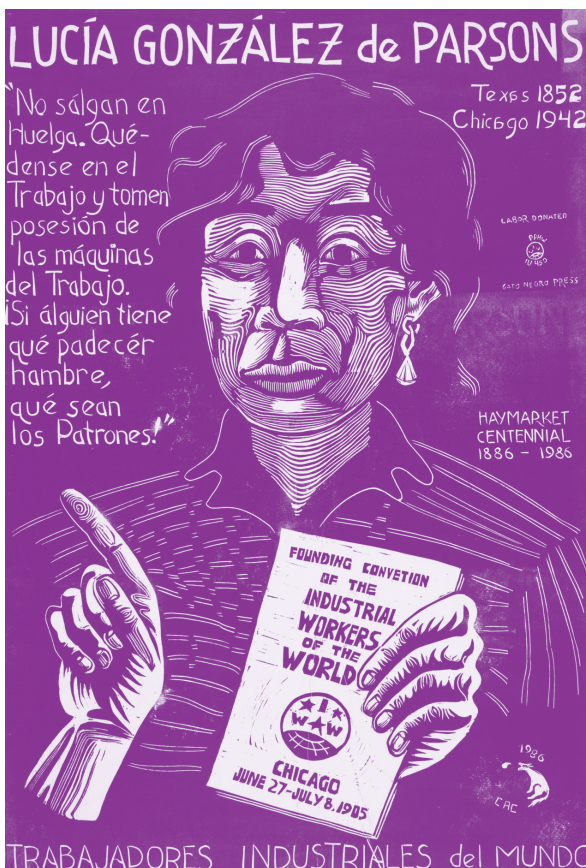 LUCÍA GONZÁLEZ de PARSONS
"No sálgan en
Huelga. Qué-
dense en el
Trabajo y tomen
posesión de
las máquinas
del Trabajo.
¡Si álguien tiene
qué padecér
hambre,
qué sean
los Patrones!"
Texas 1852
Chicago 1942
LABOR DONATED
GATO NEGRO PRESS
HAYMARKET
CENTENNIAL
1886 - 1986
FOUNDING CONVETION
OF THE
INDUSTRIAL
WORKERS
OF THE
WORLD
IWW
CHICAGO
JUNE 27-JULY 8, 1905
1986
CAC
TRABAJADORES INDUSTRIALES del MUNDO